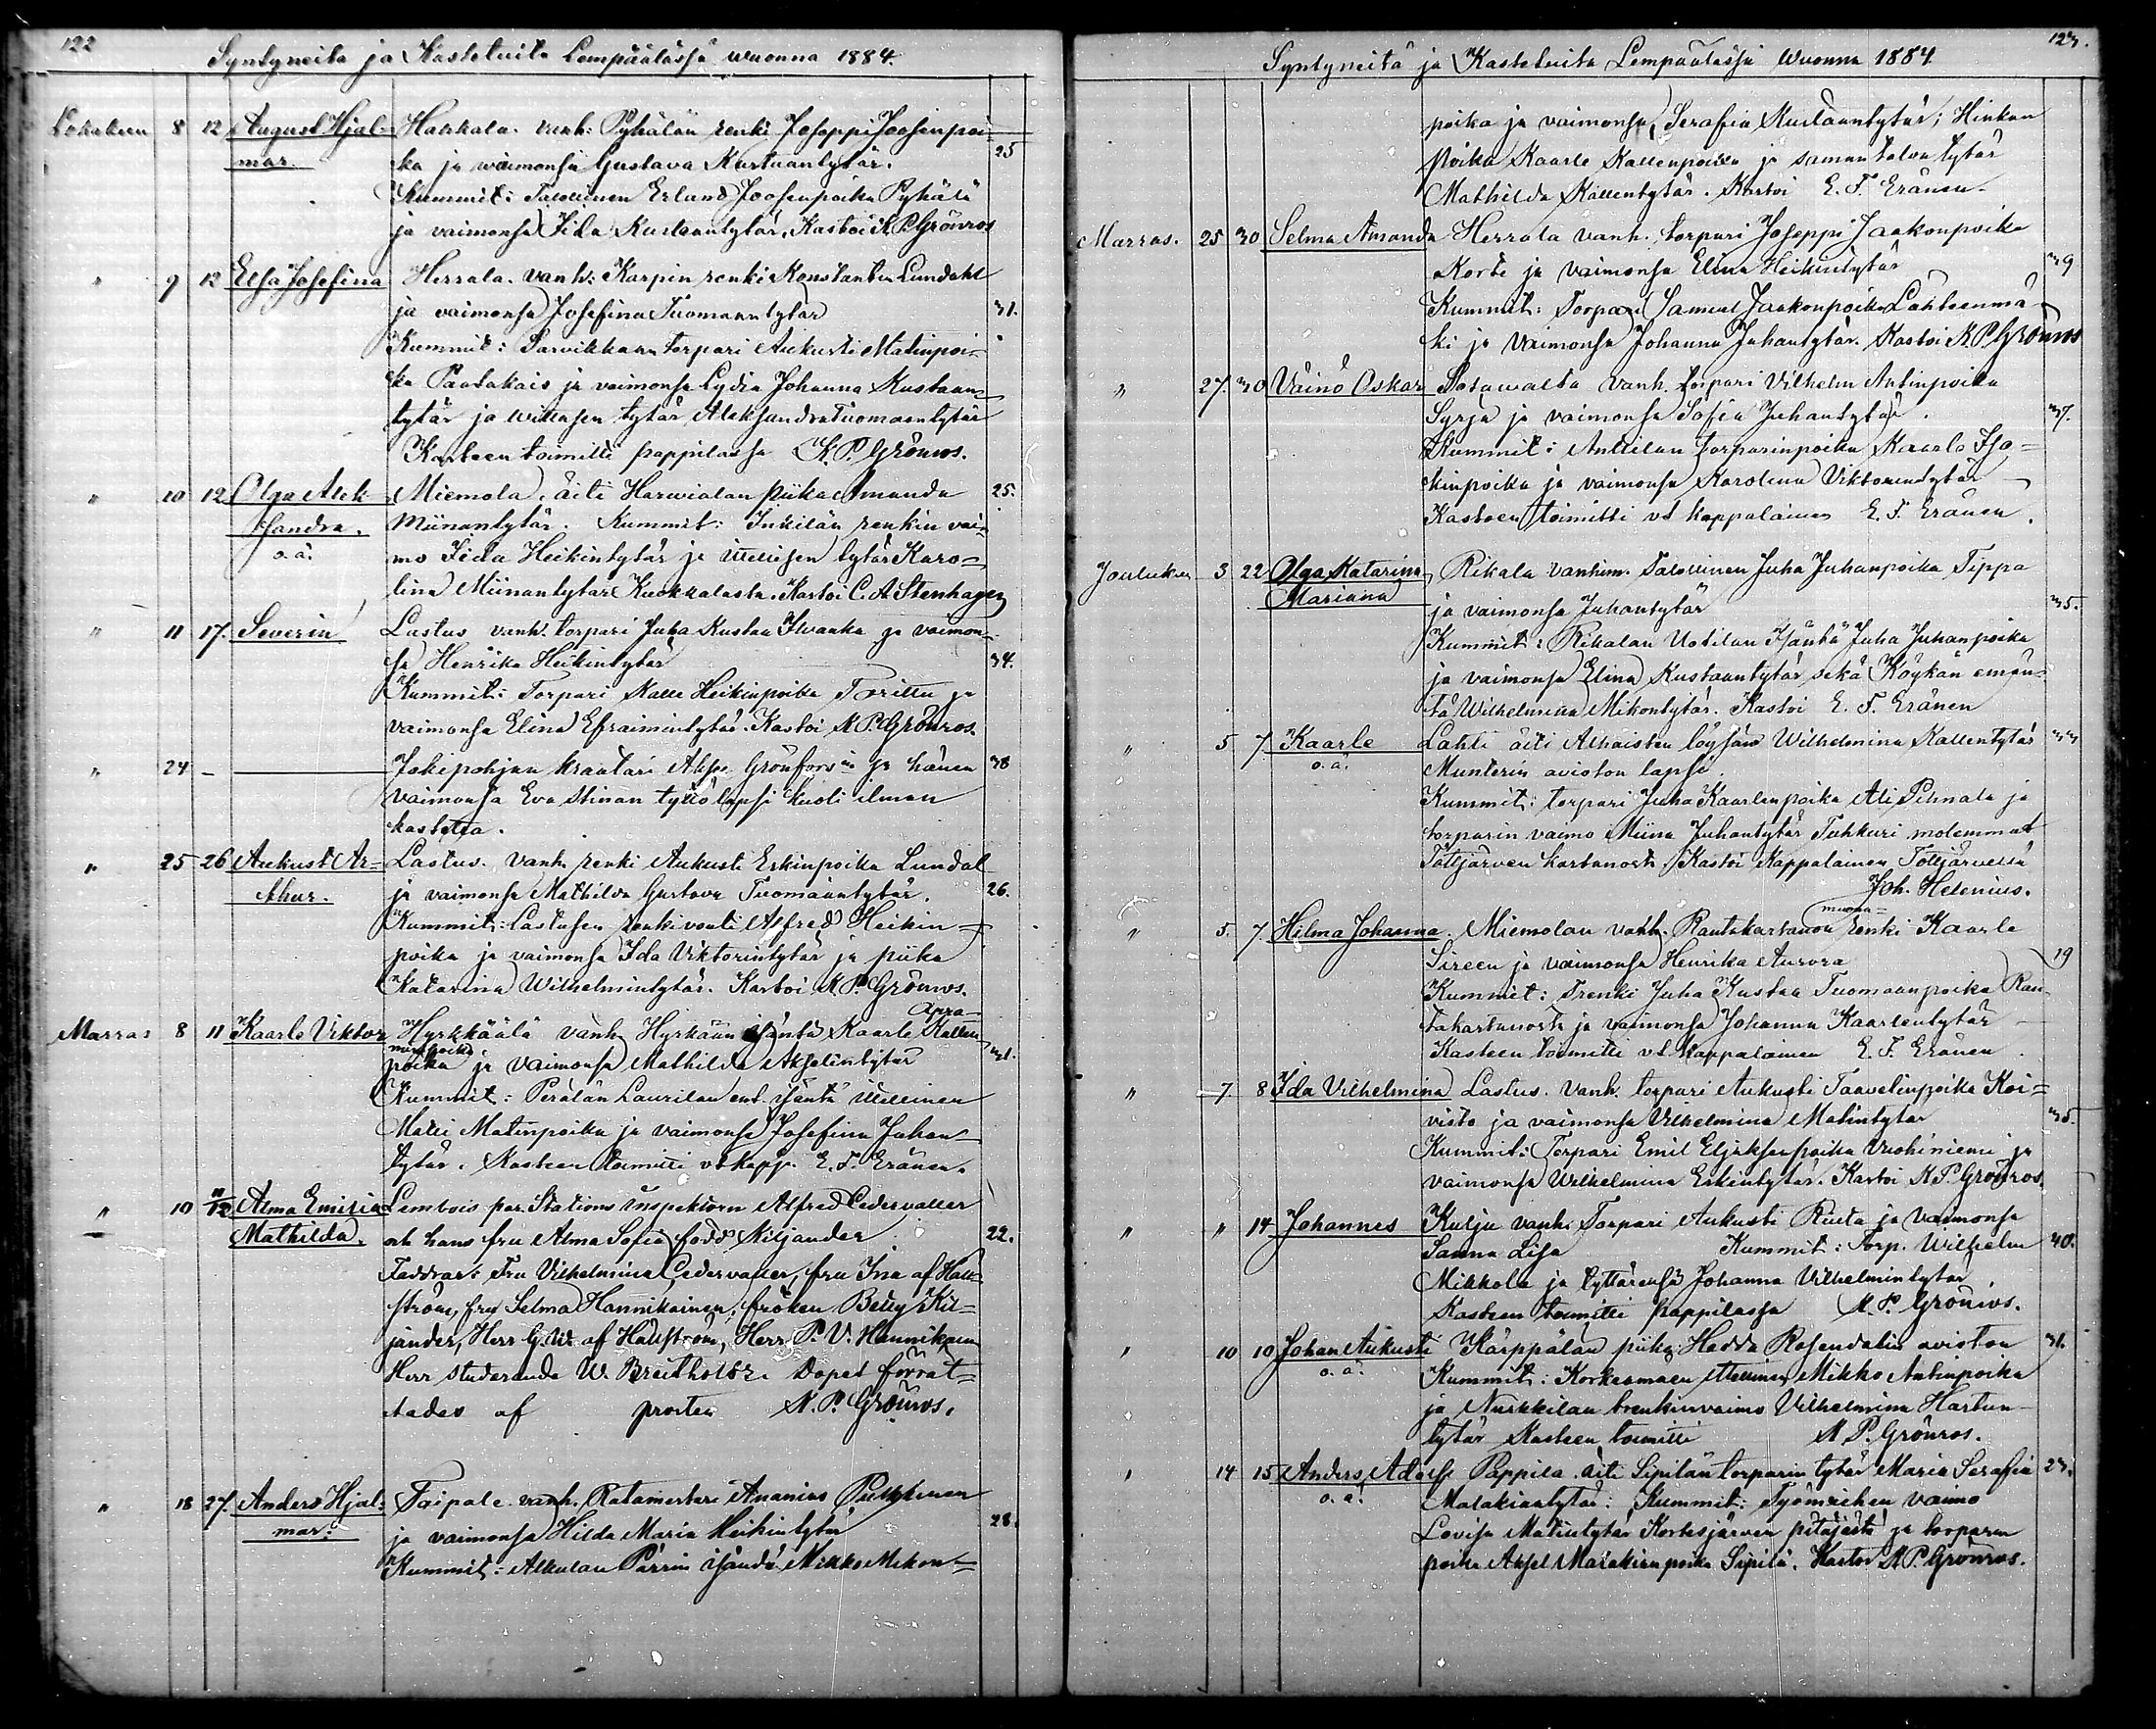 122
Syntyneitä ja Kastetuita Lempäälässä wuonna 1884.
Lokakuu 8 12 August Hjal- Hakkala. vanh: Pyhälän renki Joseppi Joosenpoi-
mar. ka ja waimonsa Gustava Kustaantytär. 25
Kummit: Talollinen Erland Joosenpoika Pyhälä
ja vaimonsa Fida Kustaantytär. Kastoi K. P. Grönros
" 9 12 Elsa Josefina Herrala. vanh: Karpin renki Konstantin Lundahl
ja vaimonsa Josefina Tuomaantytär 31.
Kummit: Sarvikkaan torpari Aukusti Matinpoi-
ka Pautakais ja vaimonsa Lydia Johanna Kustaan-
tytär ja itellisen tytär Aleksandra Tuomaantytär
Kasteen toimitti pappilassa K. P. Grönros.
" 10 12 Olga Alek- Miemola. äiti Harwialan piika Amanda 25.
sandra. Miinantytär. Kummit: Inkilän renkin vai-
o. ä. mo Fida Heikintytär ja itellisen tytär Karo-
lina Miinantytär Kuokkalasta. Kastoi C. A. Stenhagen
" 11 17. Severin Lastus vanh. torpari Juha Kustaa Iwanka ja vaimon-
sa Henrika Heikintytär 34.
Kummit: Torpari Kalle Heikinpoika Torittu ja
vaimonsa Elina Efraimintytär. Kastoi K. P. Grönros.
" 24 - Jokipohjan kraatari Aksel Grönfors'in ja hänen 38
vaimonsa Eva Stinan tyttölapsi kuoli ilman
kastetta.
" 25 26 Aukust Ar- Lastus. vanh. renki Aukusti Eskinpoika Lundal
thur. ja vaimonsa Mathilda Gustava Tuomaantytär. 26.
Kummit: Lastusen renkivouti Alfred Heikin-
poika ja vaimonsa Ida Viktorintytär ja piika
Katarina Wilhelmintytär. Kastoi K. P. Grönros.
Marras 8 11 Kaarle Viktor Hyrkkäälä vanh. Hyrkään isäntä Kaarle Kallen
poika ja vaimonsa Mathilda Akselintytär 31.
Kummit: Perälän Laurilan ent. isäntä itellinen
Matti Matinpoika ja vaimonsa Josefina Juhan-
tytär. Kasteen toimitti vt kapp. E. F. Eränen.
" 10 11/12 Alma Emilia Lembois par. Stations inspektorn Alfred Cedervaller
Mathilda. och hans fru Alma Sofia född Kiljander 22.
Faddrar: Fru Vilhelmina Cedervaller, fru Ina af Häll-
ström, fru Selma Hannikainen, fröken Betty Kil-
jander, Herr G. W. af Hällström, Herr P. V. Hannikain
Herr studerande W. Breitholtz. Dopet förrät-
tades af prosten K. P. Grönros.
" 18 27. Anders Hjal- Taipale. vanh. Ratamestari Ananias Pulkkinen
mar: ja vaimonsa Hilda Maria Heikintytär 28.
Kummit: Alkulan Pärrin isäntä Mikko Mikon-
123.
Syntyneitä ja Kastetuita Lempäälässä Wuonna 1884
poika ja vaimonsa Serafia Kustaantytär; Hinkan
poika Kaarle Kallenpoika ja saman talon tytär
Mathilda Kallentytär. Kastoi E. F. Eränen.
Marras. 25 30 Selma Amanda Herrala vanh. torpari Joseppi Jaakonpoika
Korte ja vaimonsa Elina Heikintytär 39
Kummit: Torpari Samuel Jaakonpoika Lähteenmä-
ki ja vaimonsa Johanna Juhantytär. Kastoi K. P. Grönros
" 27. 30 Väinö Oskar Sotawalta vanh. torpari Vilhelm Antinpoika
Syrjä ja vaimonsa Sofia Juhantytär. 37.
Kummit: Anttilan torparinpoika Kaarle Iso-
kinpoika ja vaimonsa Karolina Viktorintytär
Kasteen toimitti vt kappalainen E. F. Eränen.
Joulukuu 3 22 Olga Katarina Rikala vanhem. Talollinen Juha Juhanpoika Tippa
Mariana ja vaimonsa Juhantytär 35.
Kummit: Rikalan Uotilan Isäntä Juha Juhanpoika
ja vaimonsa Elina Kustaantytär sekä Köykän emän-
tä Wilhelmina Mikontytär. Kastoi E. F. Eränen
" 5 7. Kaarle Lahti äiti Alhaisten löysän Wilhelmina Kallentytär 33
o. ä. Munterin avioton lapsi.
Kummit: torpari Juha Kaarlenpoika Ali Pihnala ja
torparin vaimo Miina Juhantytär Tuhkuri molemmat
Tottijärven kartanosta. Kastoi Kappalainen Tottijärvellä
Joh. Helenius.
" 5. 7. Hilma Johanna. Miemolan vanh. Rautakartanon renki Kaarle
Sireen ja vaimonsa Henrika Aurora 19
Kummit: Trenki Juha Kustaa Tuomaanpoika Rau-
takartanosta ja vaimonsa Johanna Kaarlentytär
Kasteen toimitti vt kappalainen E. F. Eränen.
" 7 8 Ida Vilhelmina Lastus. vanh. torpari Aukusti Taavetinpoika Koi-
visto ja vaimonsa Vilhelmina Matintytär 35.
Kummit: Torpari Emil Eljaksenpoika Vuohiniemi ja
vaimonsa Wilhelmina Eskintytär. Kastoi K. P. Grönros.
" " 14 Johannes Kulju vanh. Torpari Aukusti Rieta ja vaimonsa
Sanna Lisa Kummit: Torp. Wilhelm 40.
Mikkola ja tyttärensä Johanna Vilhelmintytär.
Kasteen toimitti pappilassa K. P. Grönros.
" 10 10 Johan Aukusti Kärppälän piika Hedda Rosendalin avioton 31.
o. ä. Kummit: Korkeamaen ittellinen Mikko Antinpoika
ja Nurkkilan trenkinvaimo Vilhelmina Hartun-
tytär Kasteen toimitti K. P. Grönros.
" 14 15 Anders Adolf Pappila. äiti Sipilän torparin tytär Maria Serafia 23.
o. ä. Malakiantytär: Kummit: Työmiehen vaimo
Lovisa Matintytär Kortesjärven pitäjästä ja torparin
poika Aksel Malakianpoika Sipilä. Kastoi K. P. Grönros.